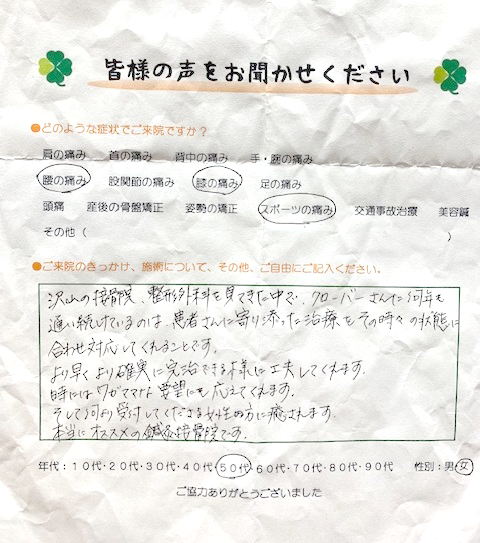 皆様の声をお聞かせください
●どのような症状でご来院ですか？
肩の痛み 首の痛み 背中の痛み 手・腕の痛み
腰の痛み 股関節の痛み 膝の痛み 足の痛み
頭痛 産後の骨盤矯正 姿勢の矯正 スポーツの痛み 交通事故治療 美容鍼
その他（ ）
●ご来院のきっかけ、施術について、その他、ご自由にご記入ください。
沢山の接骨院、整形外科を見てきた中で、クローバーさんに何年も
通い続けているのは、患者さんに寄り添った治療をその時々の状態に
合わせ対応してくれることです。
より早くより確実に完治できる様に工夫してくれます。
時にはワガママナ要望にも応えてくれます。
そして何より受付してくださる女性の方に癒されます。
本当にオススメの鍼灸接骨院です。
年代：10代・20代・30代・40代・50代・60代・70代・80代・90代 性別：男・女
ご協力ありがとうございました